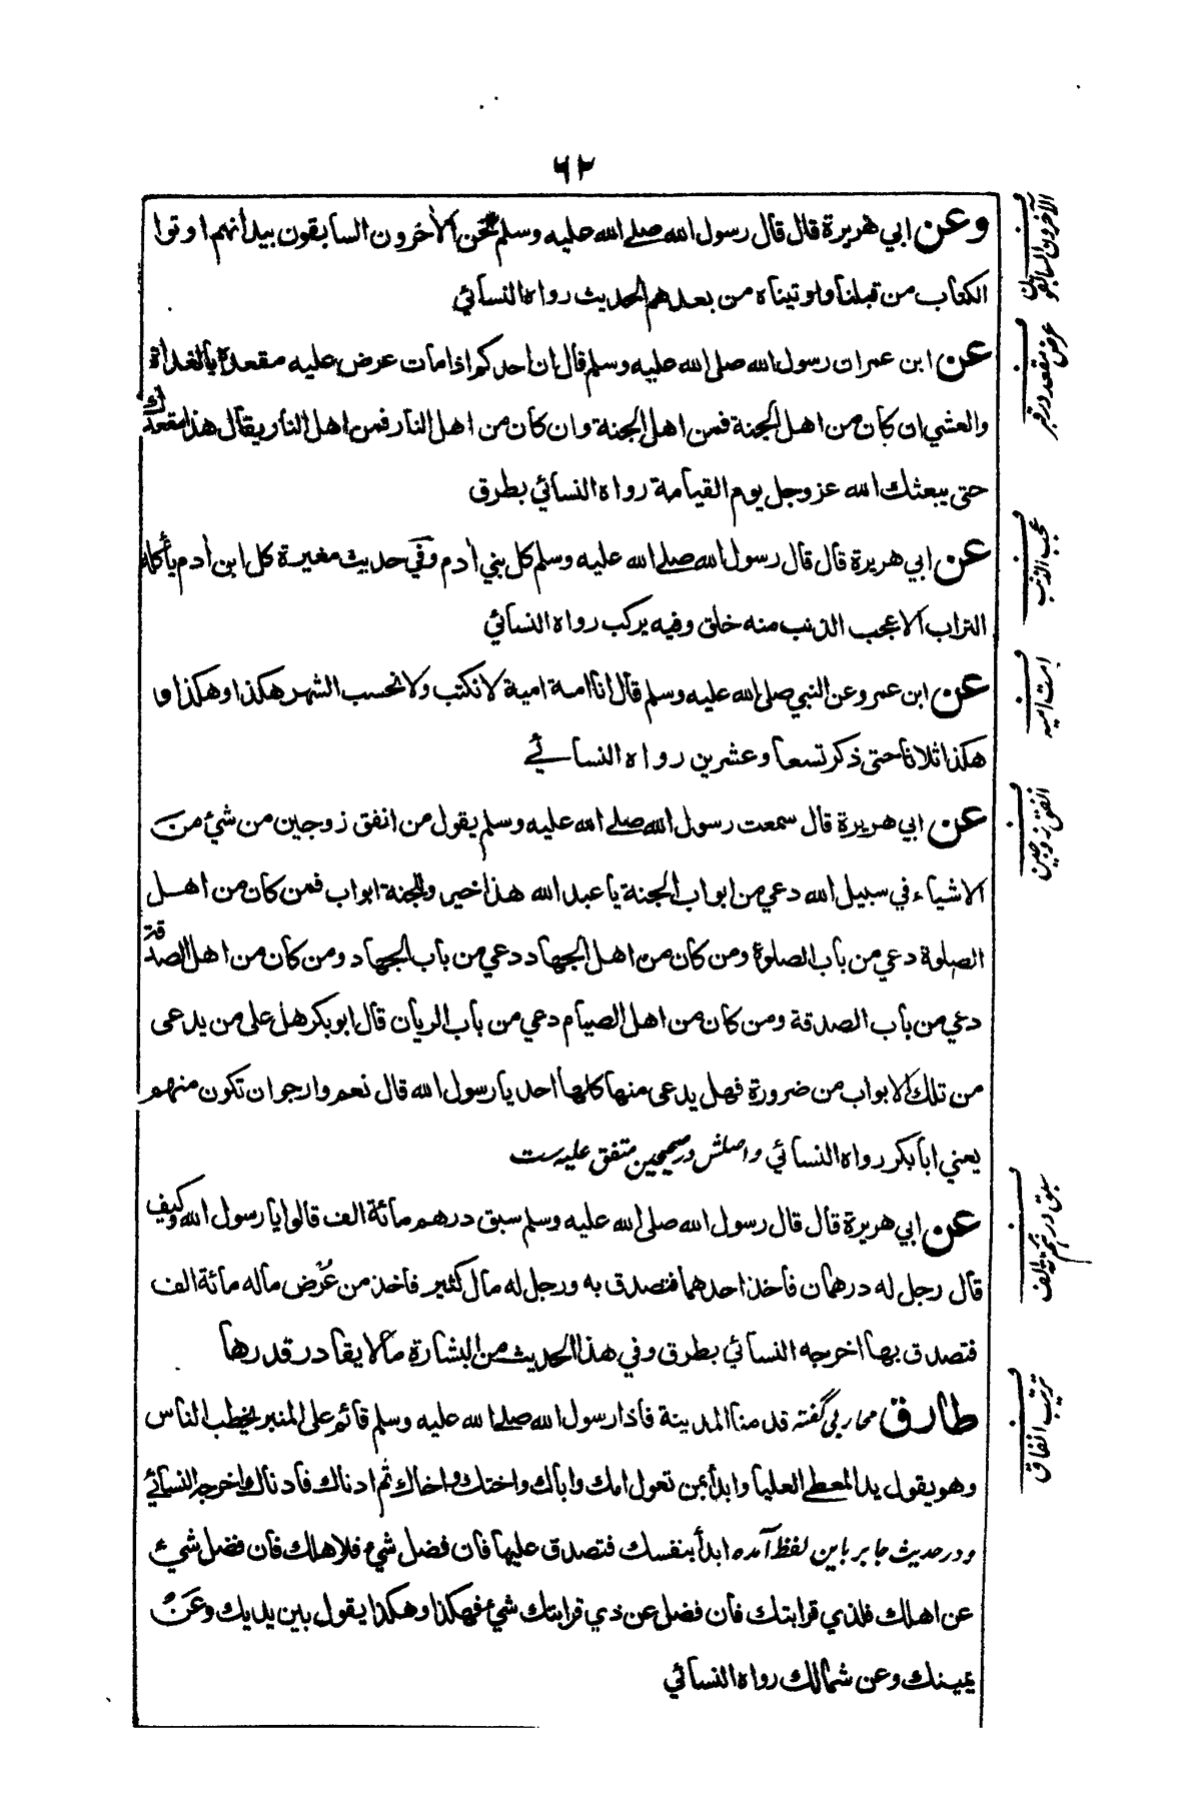 ٦٢
وعن ابي هريرة قال قال رسول الله صلے الله عليه وسلم نحن الأخرون السابقون بيد انهم اوتوا
الكتاب من قبلنا واوتيناه من بعدهم الحديث رواه النسائي
عن ابن عمران رسول الله صلى الله عليه وسلم قال ان احدكم اذا مات عرض عليه مقعده بالغداة
والعشي ان كان من اهل الجنة فمن اهل الجنة وان كان من اهل النار فمن اهل النار يقال هذا مقعدك
حتى يبعثك الله عز وجل يوم القيامة رواه النسائي بطرق
عن ابي هريرة قال قال رسول الله صلے الله عليه وسلم كل بني أدم وفي حديث مغيرة كل ابن أدم يأكله
التراب الا عجب الذنب منه خلق وفيه يركب رواه النسائي
عن ابن عمر وعن النبي صلى الله عليه وسلم قال انا امة امية لا نكتب ولا نحسب الشهر هكذا وهكذا و
هكذا ثلاثا حتى ذكر تسعا وعشرين رواه النسائي
عن ابي هريرة قال سمعت رسول الله صلے الله عليه وسلم يقول من انفق زوجين من شيء من
الاشياء في سبيل الله دعي من ابواب الجنة يا عبد الله هذا خير وللجنة ابواب فمن كان من اهل
الصلوة دعي من باب الصلوة ومن كان من اهل الجهاد دعي من باب الجهاد ومن كان من اهل الصدقة
دعي من باب الصدقة ومن كان من اهل الصيام دعي من باب الريان قال ابو بكر هل على من يدعى
من تلك الابواب من ضرورة فهل يدعى منها كلها احد يا رسول الله قال نعم وارجو ان تكون منهم
يعني ابا بكر رواه النسائي واصلش در صحيحين متفق عليه ست
عن ابي هريرة قال قال رسول الله صلى الله عليه وسلم سبق درهم مائة الف قالوا يا رسول الله وكيف
قال رجل له درهمان فاخذ احدهما فتصدق به ورجل له مال كثير فاخذ من عرض ماله مائة الف
فتصدق بها اخرجه النسائي بطرق وفي هذا الحديث من البشارة ما لا يقادر قدرها
طارق محاربي گفته قدمنا المدينة فاذا رسول الله صلے الله عليه وسلم قائم على المنبر يخطب الناس
وهو يقول يد المعطي العليا وابدأ بمن تعول امك واباك واختك واخاك ثم ادناك فادناك اخرجه النسائي
ودر حديث جابر باين لفظ آمده ابدأ بنفسك فتصدق عليها فان فضل شيء فلاهلك فان فضل شيء
عن اهلك فلذي قرابتك فان فضل عن ذي قرابتك شيء فهكذا وهكذا يقول بين يديك وعن
يمينك وعن شمالك رواه النسائي
الآخرون السابقون
عرض مقعد در قبر
عجب الذنب
امت اميه
انفق زوجين
سبق درهم بر الف
ترتيب انفاق